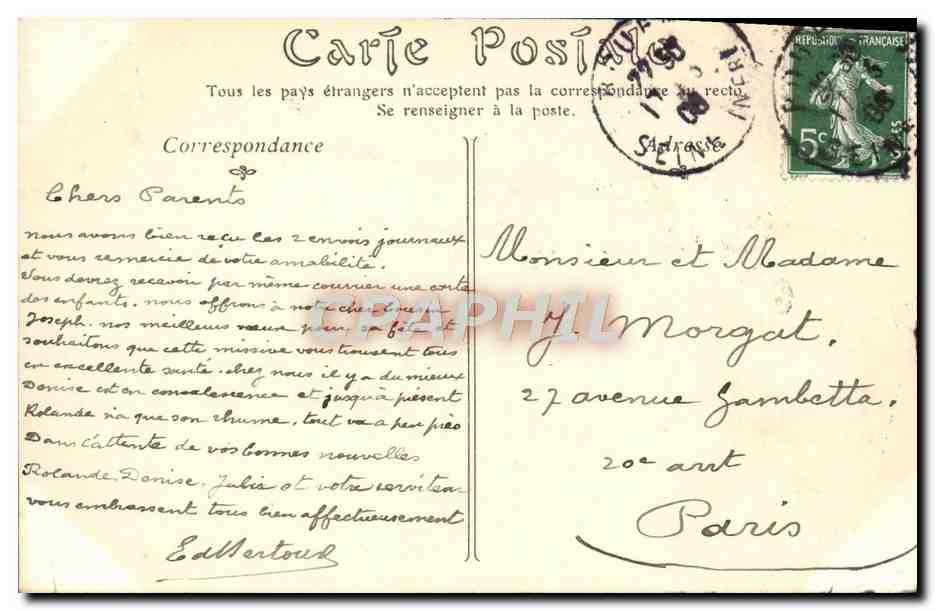 Carte Postale
Tous les pays étrangers n'acceptent pas la correspondance au recto
Se renseigner à la poste.
Correspondance
Adresse
SEINE
22
17
08
REPUBLIQUE FRANÇAISE
5c
Chers Parents
nous avons bien reçu les 2 envois journaux
et vous remercie de votre amabilité.
Vous devrez recevoir par même courrier une carte
des enfants. nous offrons à notre cher cousin
Joseph. nos meilleurs vœux pour sa fête et
souhaitons que cette missive vous trouvent tous
en excellente santé. chez nous il y a du mieux
Denise est en convalescence et jusqu'à présent
Rolande n'a que son rhume. tout va a peu près
Dans l'attente de vos bonnes nouvelles
Rolande, Denise, Julia et votre serviteur
vous embrassent tous bien affectueusement
Monsieur et Madame
J. Morgat.
27 avenue Gambetta.
20e arrt
Paris
CPAPHIL